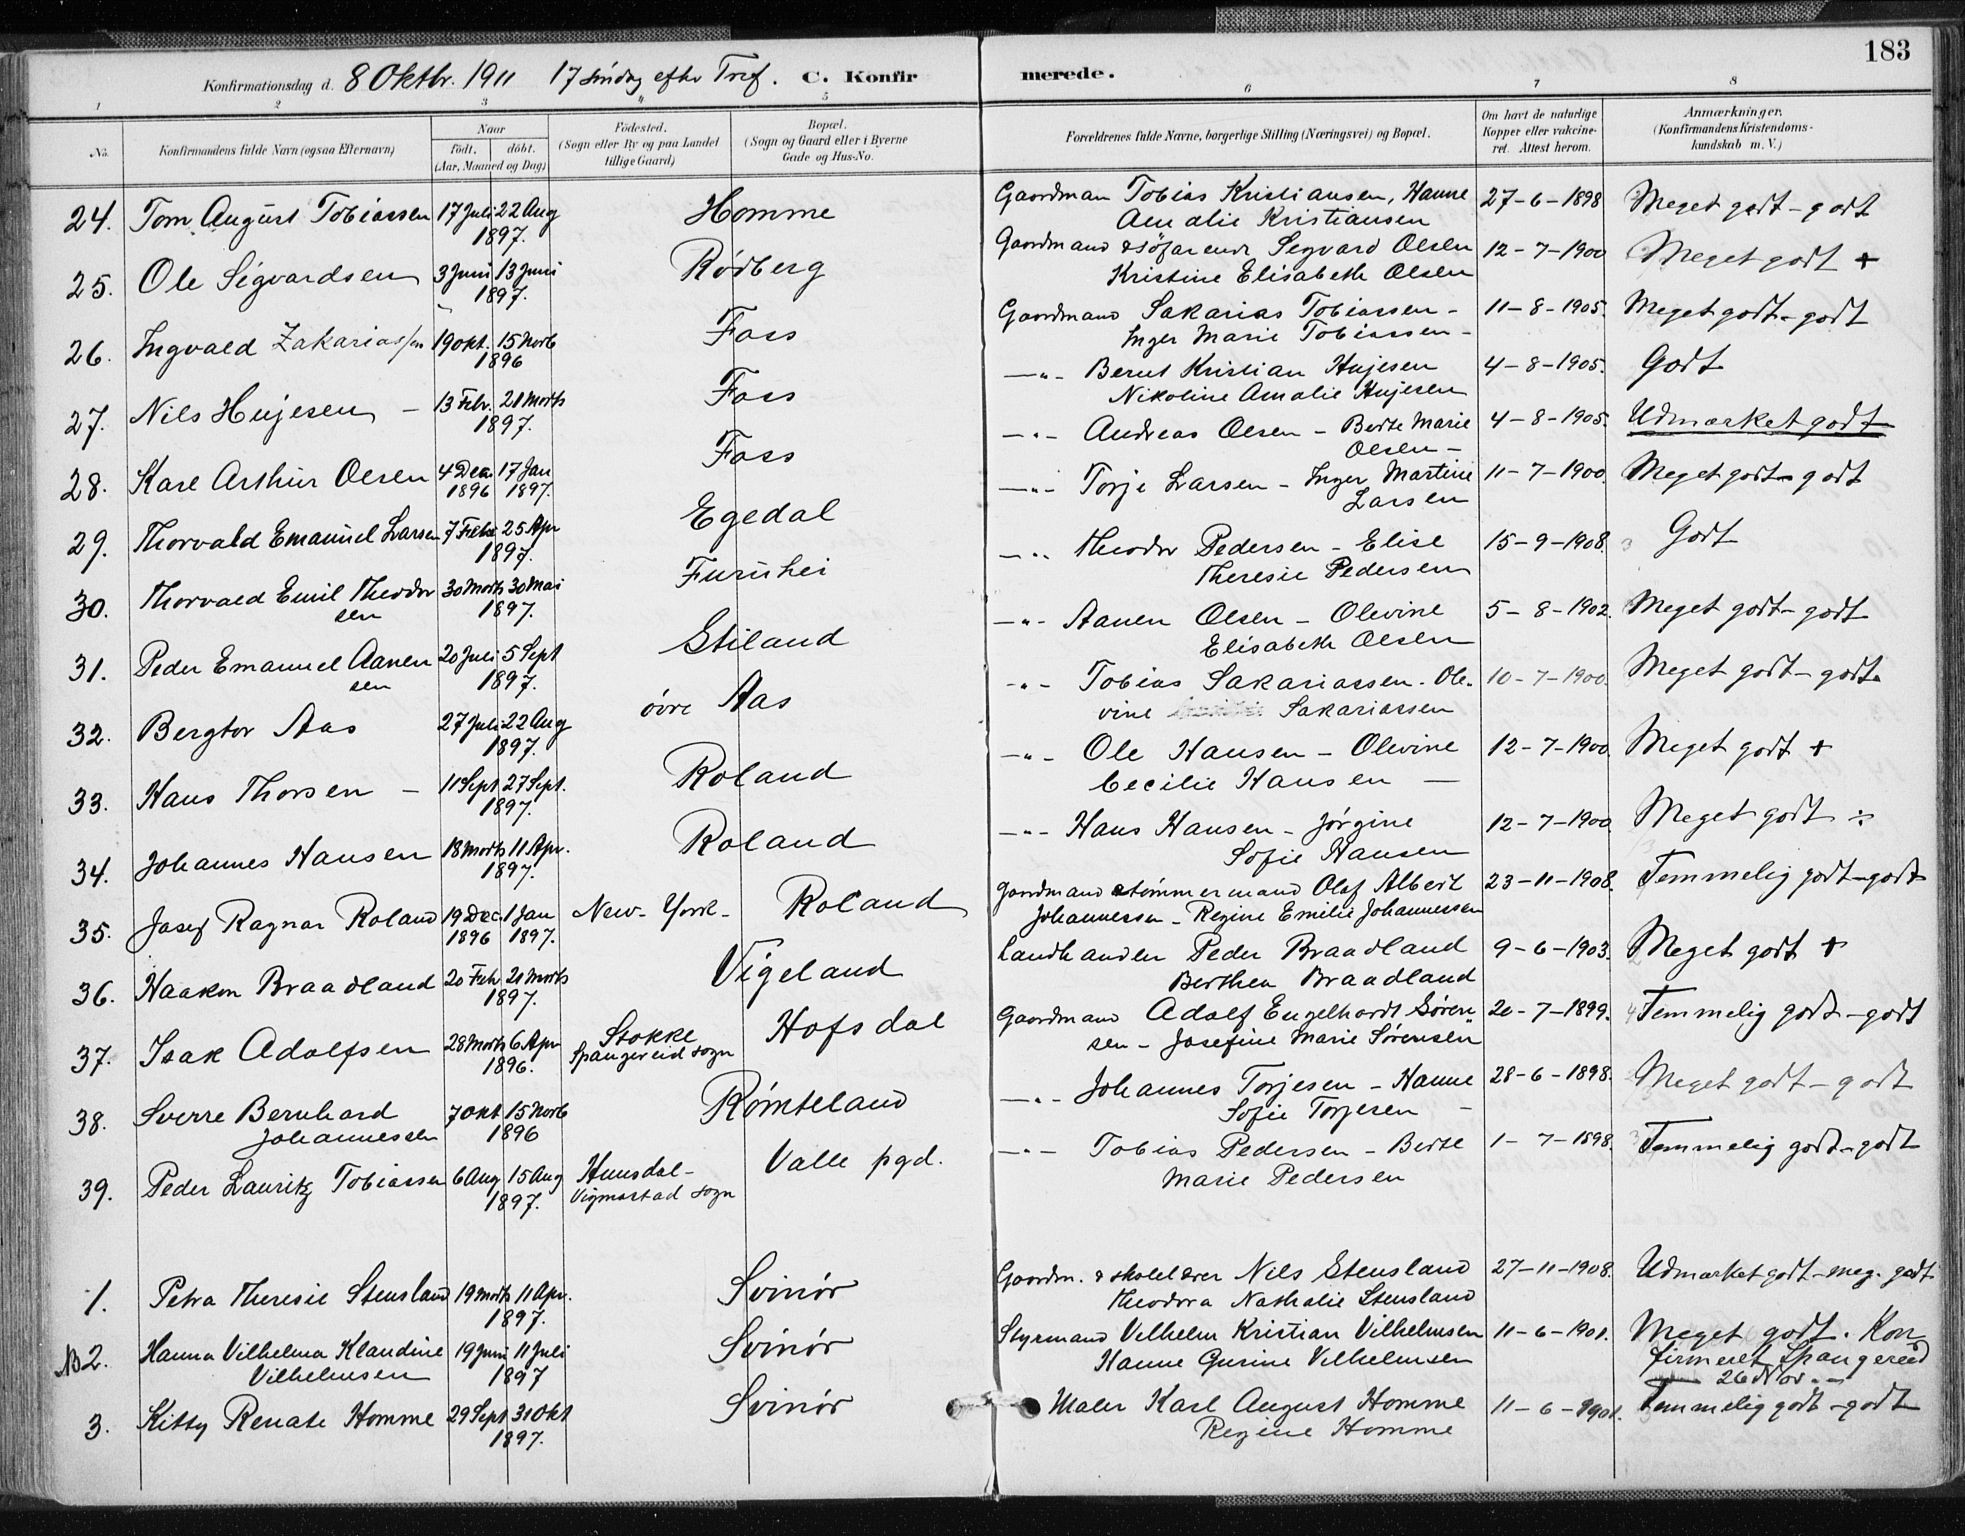 183
Konfirmationsdag d. 8 Oktbr. 1911 17 søndag efter Tref. C. Konfirmerede.
1 2 3 4 5 6 7 8
No. Konfirmandens fulde Navn (ogsaa Efternavn) Naar født. døbt. (Aar, Maaned og Dag) Fødested. (Sogn eller By og paa Landet tillige Gaard) Bopæl. (Sogn og Gaard eller i Byerne Gade og Hus-No. Forældrenes fulde Navne, borgerlige Stilling (Næringsvei) og Bopæl. Om havt de naturlige Kopper eller vakcineret. Attest herom. Anmærkninger. (Konfirmandens Kristendomskundskab m. V.)
24. Tom August Tobiassen 17 Juli 22 Aug 1897. Homme Gaardman Tobias Kristiansen, Hanne Amalie Kristiansen 27-6-1898 Meget godt - godt
25. Ole Sigvardsen 3 Juni 13 Juni 1897. Rødberg Gaardmand & søfarende Segvard Olsen Kristine Elisabeth Olsen 12-7-1900 Meget godt +
26. Ingvald Zakariassen 19 okt. 15 Novb 1896 Foss Gaardmand Sakarias Tobiassen - Inger Marie Tobiassen - 11-8-1905. Meget godt - godt
27. Nils Hujesen - 13 Febr. 21 Marts 1897. Foss -"- Bernt Kristian Hujesen Nikoline Amalie Hujesen 4-8-1905. Godt
28. Karl Arthur Olsen 4 Dec. 1896 17 Jan 1897. Foss -"- Andreas Olsen - Berte Marie Olsen - 4-8-1905. Udmærket godt
29. Thorvald Emanuel Larsen 7 Febr 25 Apr 1897. Egedal -"- Torje Larsen - Inger Martine Larsen 11-7-1900 Meget godt - godt
30. Thorvald Emil Theodorsen 30 Marts 30 Mai 1897. Furuhei -"- Theodor Pedersen - Elise Theresie Pedersen 15-9-1908 Godt
31. Peder Emanuel Aanensen 20 Juli 5 Sept 1897. Stiland -"- Aanen Olsen - Olevine Elisabeth Olsen 5-8-1902. Meget godt - godt
32. Bergtor Aas 27 Juli 22 Aug 1897. øvre Aas -"- Tobias Sakariassen - Olevine Sakariassen 10-7-1900. Meget godt - godt
33. Hans Thorsen - 11 Sept 27 Sept. 1897. Roland -"- Ole Hansen - Olevine Cecilie Hansen - 12-7-1900 Meget godt +
34. Johannes Hansen 18 Marts 11 Apr. 1897. Roland -"- Hans Hansen - Jørgine Sofie Hansen 12-7-1900 Meget godt ÷
35. Josef Ragnar Roland 19 Dec. 1896 1 Jan 1897. New-York- Roland Gaardmand & tømmermand Olaf Albert Johannessen - Regine Emilie Johannessen 23-11-1908. Temmelig godt - godt
36. Haakon Braadland 20 Febr 21 Marts 1897. Vigeland Landhandler Peder Braadland Berthea Braadland 9-6-1903. Meget godt +
37. Isak Adolfsen 28 Marts 6 Apr 1896. Stokke Spangereid sogn Hofsdal Gaardmand Adolf Engelhardt Sørensen - Josefine Marie Sørensen 20-7-1899. Temmelig godt - godt
38. Sverre Bernhard Johannessen 7 Okt 15 Novb 1896 Rømteland -"- Johannes Torjesen - Hanne Sofie Torjesen - 28-6-1898. Meget godt - godt
39. Peder Lauritz Tobiassen 6 Aug 15 Aug 1897. Hunsdal - Vigmostad sogn Valle pgd. -"- Tobias Pedersen - Berte Marie Pedersen 1-7-1898. Temmelig godt - godt
1. Petra Theresie Stensland 19 Marts 11 Apr. 1897. Svinør Gaardm. & skolelærer Nils Stensland Theodora Nathalie Stensland 27-11-1908. Udmærket godt - meg. godt
NB 2. Hanna Vilhelma Klaudine Vilhelmsen 19 Juni 11 Juli 1897 Svinør Styrmand Vilhelm Kristian Vilhelmsen Hanne Gurine Vilhelmsen 11-6-1901. Meget godt. Konfirmeret Spangereid 26 Nov. -
3. Kitty Renate Homme 29 Sept 31 Okt 1897. Svinør Maler Karl August Homme Regine Homme 11-6-1901. Temmelig godt - godt